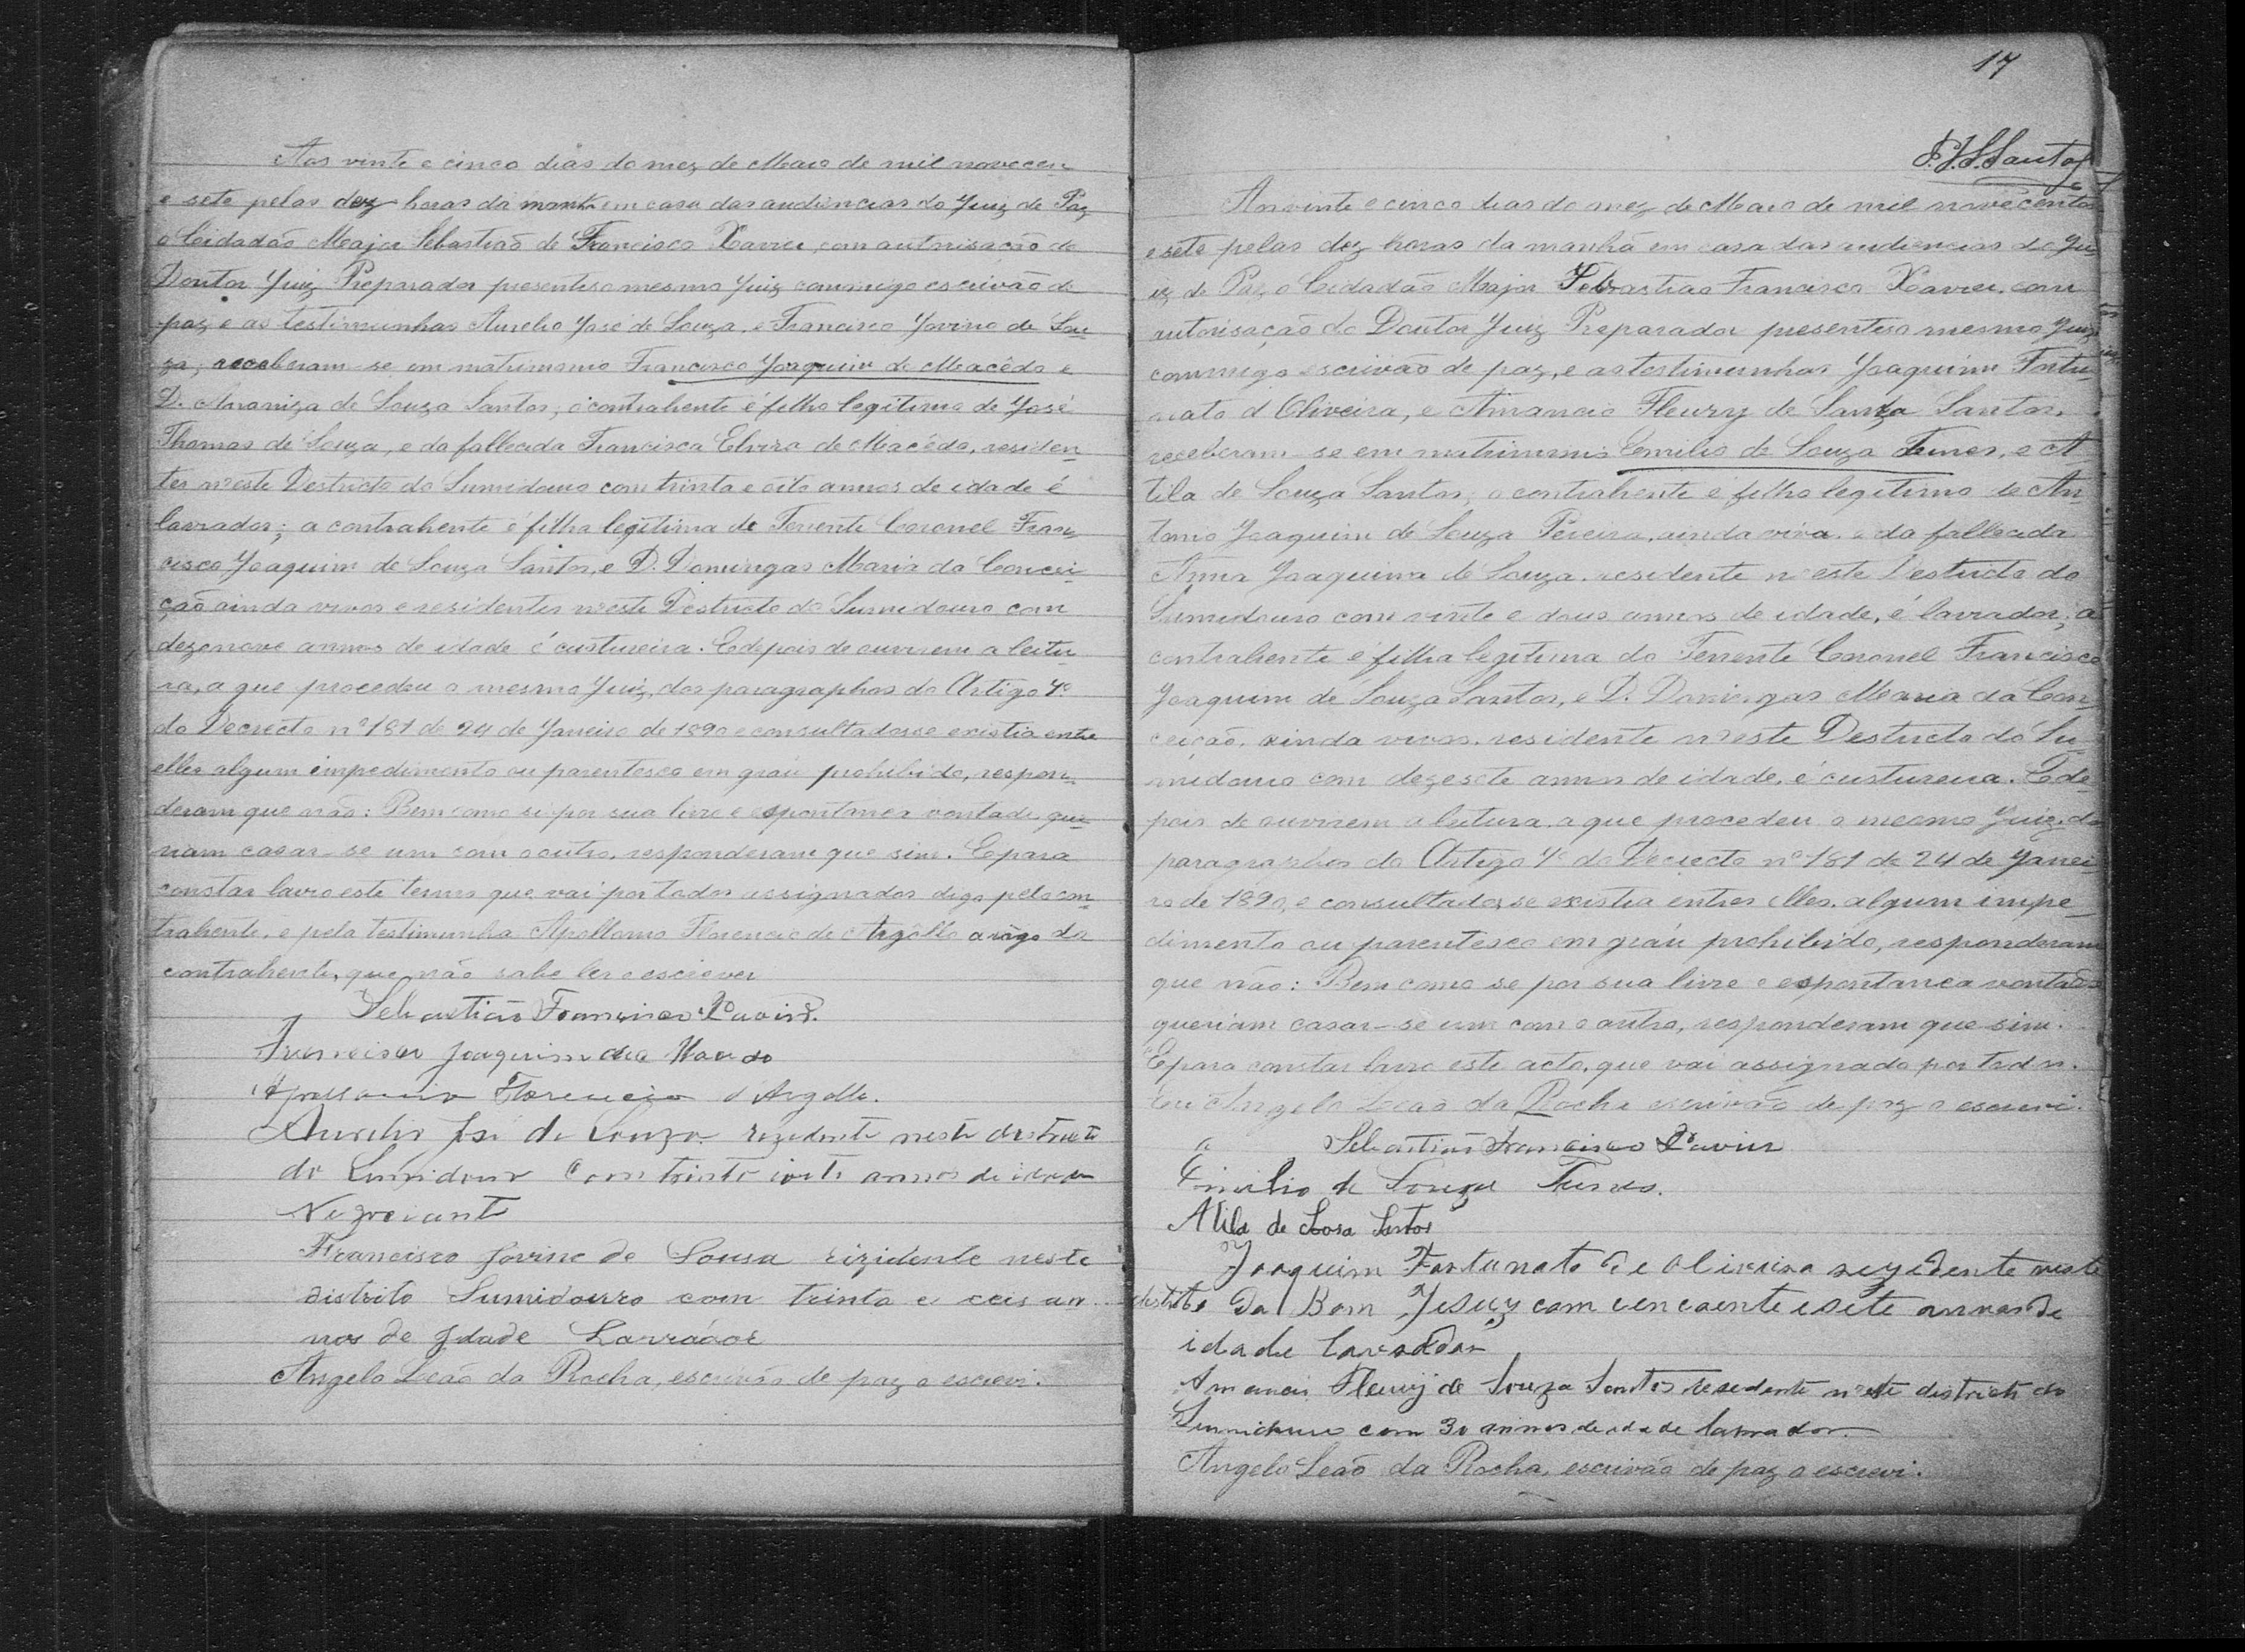 Aos vinte e cinco dias do mez de Maio de mil novecen
e sete pelas dez horas da manhã em casa das audiencias do Juiz de Paz
o Cidadão Major Sebastião de Francisco Xavier, com autorisação do
Doutor Juiz Preparador presentes o mesmo Juiz commigo escrivão de
paz, e as testimunhas Aurelio José de Souza, e Francisco Jovino de Sou-
za, receberam-se em matrimonio Francisco Joaquim de Macêdo e
D. de Souza Santos, o contrahente é filho legitimo de José
Thomas de Souza, e da fallecida Francisca Elvira de Macêdo, residen-
tes n'este Destricto do Sumidouro com trinta e oito annos de idade é
lavrador; a contrahente é filha legitima de Tenente Coronel Fran-
cisco Joaquim de Souza Santos, e D. Domingas Maria da Concei-
ção ainda vivos e residentes n'este Destricto do Sumidouro, com
dezenove annos de idade é custureira. E depois de ouvirem a leitu-
ra, a que procedeu o mesmo Juiz, dos paragraphos do Artigo 7º
do Decrecto nº 181 de 24 de Janeiro de 1890 e consultados se existia entre
elles algum impedimento ou parentesco em gráu prohibido, respon-
deram que não: Bem como si por sua livre e espontanea vontade que-
riam casar-se um com o outro, responderam que sim. E para
constar lavro este termo que vai por todos assignados digo pelo con-
trahente, e pela testimunha Apollonio Florencio de Argôllo a rôgo da
contrahente, que não sabe ler e escrever
Sebastião Francisco Xavier.
Francisco Joaquim de Macedo
Apollonio Florencio d'Argollo.
Aurelio José de Souza rezidente neste destricto
do Sumidouro com trinta annos de idade
Negociante
Francisco Jovino de Sousa rizidente neste
distrito Sumidouro com trinta e ceis an
nos de Idade Lavrador
Angelo Leão da Rocha, escrivão de paz o escrevi.
17
F.J.S.Santos
Aos vinte e cinco dias do mez de Maio de mil novecentos
e sete pelas dez horas da manhã em casa das audiencias do Ju-
iz de Paz, o Cidadão Major Sebastião Francisco Xavier, com
autorisação do Doutor Juiz Preparador presentes o mesmo Juiz
commigo escrivão de paz, e as testimunhas Joaquim Fortu-
nato d'Oliveira, e Amancio Fleury de Souza Santos,
receberam-se em matrimonio Emilio de Souza Funes, e A-
tila de Souza Santos, o contrahente é filho legitimo de An-
tonio Joaquim de Souza Pereira, ainda vivo, e da fallecida
Anna Joaquina de Souza, residente n'este Destricto do
Sumidouro com vinte e dous annos de idade, é lavrador; a
contrahente é filha legitima do Tenente Coronel Francisco
Joaquim de Souza Santos, e D. Domingas Maria da Con-
ceição, ainda vivos, residente n'este Destricto do Su-
midouro com dezesete annos de idade, é custureira. E de-
pois de ouvirem a leitura, a que procedeu o mesmo Juiz, do
paragraphos do Artigo 7º do Decrecto nº 181 de 24 de Janei-
ro de 1890, e consultados, se existia entres elles, algum impe-
dimento ou parentesco em gráu prohibido, responderam
que não: Bem como se por sua livre e espontanea vontade
queriam casar-se um com o outro, responderam que sim.
E para constar lavro este acto, que vai assignado por todos.
Eu Angelo Leão da Rocha escrivão de paz o escrevi.
Sebastião Francisco Xavier
Emilio de Souza Funes.
Atila de Sosa Santos
Joaquim Fortunato de Oliveira rezedente neste
distrito Do Bom Jesuz com cencoente e sete annos de
idade lavrador
Amancio Fleury de Souza Santos resedente n'este districto do
Sumidouro com 30 annos de idade lavrador.
Angelo Leão da Rocha, escrivão de paz o escrevi.